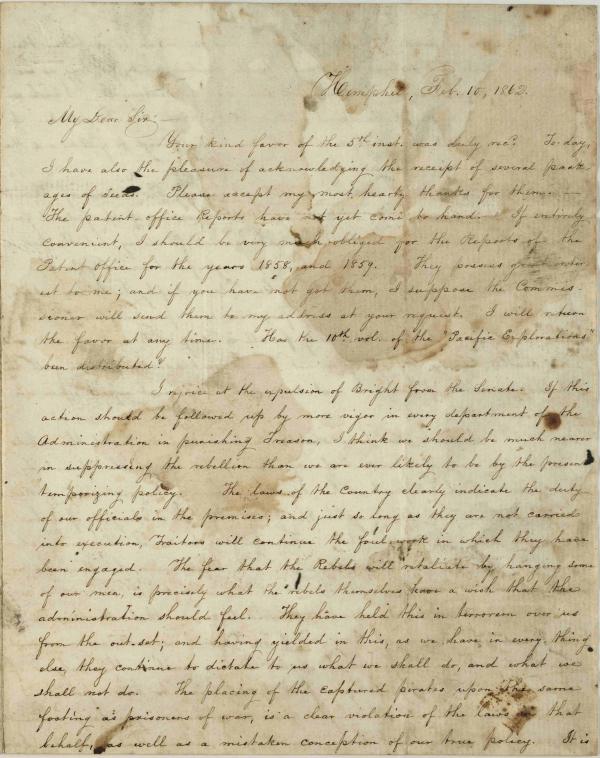 Hemphill, Feb. 10, 1862.
My Dear Sir:—
Your kind favor of the 5th inst. was duly recd. To day,
I have also the pleasure of acknowledging the receipt of several pack-
ages of seeds. Please accept my most hearty thanks for them. —
The patent-office Reports have not yet come to hand. If entirely
convenient, I should be very much obliged for the Reports of the
Patent office for the years 1858, and 1859. They possess great inter-
est to me; and if you have not got them, I suppose the Commis-
sioner will send them to my address at your request. I will return
the favor at any time. Has the 10th vol. of the "Pacific Explorations"
been distributed?
I rejoice at the expulsion of Bright from the Senate. If this
action should be followed up by more vigor in every department of the
Administration in punishing Treason, I think we should be much nearer
in suppressing the rebellion than we are ever likely to be by the present
temporizing policy. The laws of the Country clearly indicate the duty
of our officials in the premises; and just so long as they are not carried
into execution, Traitors will continue the foul work in which they have
been engaged. The fear that the Rebels will retaliate by hanging some
of our men, is precisely what the rebels themselves have a wish that the
administration should feel. They have held this in terrorem over us
from the out-set; and having yielded in this, as we have in every thing
else, they continue to dictate to us what we shall do, and what we
shall not do. The placing of the captured pirates upon the same
footing as prisoners of war, is a clear violation of the laws in that
behalf, as well as a mistaken conception of our true policy. It is